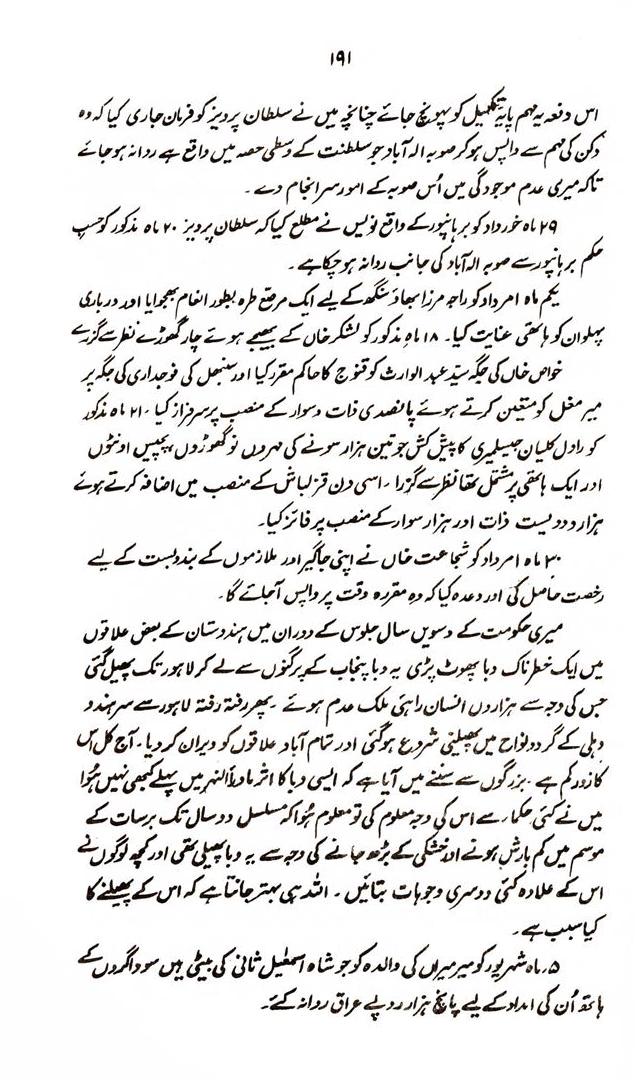 ۱۹۱
اس دفعہ یہ مہم پایۂ تکمیل کو پہونچ جائے چنانچہ میں نے سلطان پرویز کو فرمان جاری کیا کہ وہ
دکن کی مہم سے واپس ہو کر صوبہ الہ آباد جو سلطنت کے وسطی حصہ میں واقع ہے روانہ ہو جائے
تاکہ میری عدم موجودگی میں اُس صوبہ کے امور سر انجام دے ۔
۲۹ ماہ خورداد کو برہانپور کے واقع نویس نے مطلع کیا کہ سلطان پرویز ۲۰ ماہ مذکور کو حسب
حکم برہانپور سے صوبہ الہ آباد کی جانب روانہ ہو چکا ہے ۔
یکم ماہ امرداد کو راجہ مرزا بھاؤ سنگھ کے لیے ایک مرصع طرہ بطور انعام بھجوایا اور درباری
پہلوان کو ہاتھی عنایت کیا۔ ۱۸ ماہ مذکور کو لشکر خاں کے بھیجے ہوئے چار گھوڑے نظر سے گزرے
خواص خاں کی جگہ سیّد عبد الوارث کو قنوج کا حاکم مقرر کیا اور سنبھل کی فوجداری کی جگہ پر
میر مغل کو متعین کرتے ہوئے پانصدی ذات و سوار کے منصب پر سرفراز کیا ۔ ۲۱ ماہ مذکور
کو راول کلیان جیسلمیری کا پیش کش جو تین ہزار سونے کی مہروں نو گھوڑوں، پچیس اونٹوں
اور ایک ہاتھی پر مشتمل تھا نظر سے گزرا ۔ اسی دن قزلباش کے منصب میں اضافہ کرتے ہوئے
ہزار و دویست ذات اور ہزار سوار کے منصب پر فائز کیا۔
۳۰ ماہ امرداد کو شجاعت خاں نے اپنی جاگیر اور ملازموں کے بندوبست کے لیے
رخصت حاصل کی اور وعدہ کیا کہ وہ مقررہ وقت پر واپس آجائے گا۔
میری حکومت کے دسویں سال جلوس کے دوران میں ہندوستان کے بعض علاقوں
میں ایک خطرناک وبا پھوٹ پڑی یہ وبا پنجاب کے پرگنوں سے لے کر لاہور تک پھیل گئی
جس کی وجہ سے ہزاروں انسان راہئی ملک عدم ہوئے ۔ پھر رفتہ رفتہ لاہور سے سرہند و
دہلی کے گرد و نواح میں پھیلنی شروع ہو گئی اور تمام آباد علاقوں کو ویران کر دیا۔ آج کل اس
کا زور کم ہے ۔ بزرگوں سے سننے میں آیا ہے کہ ایسی وبا کا اثر ماورأ النہر میں پہلے کبھی نہیں ہُوا
میں نے کئی حکماء سے اس کی وجہ معلوم کی تو معلوم ہُوا کہ مسلسل دو سال تک برسات کے
موسم میں کم بارش ہونے اور خشکی کے بڑھ جانے کی وجہ سے یہ وبا پھیلی تھی اور کچھ لوگوں نے
اس کے علاوہ کئی دوسری وجوہات بتائیں ۔ اللہ ہی بہتر جانتا ہے کہ اس کے پھیلنے کا
کیا سبب ہے ۔
۵ ۔ ماہ شہریور کو میر میراں کی والدہ کو جو شاہ اسمٰعیل ثانی کی بیٹی ہیں سوداگروں کے
ہاتھ اُن کی امداد کے لیے پانچ ہزار روپے عراق روانہ کئے۔